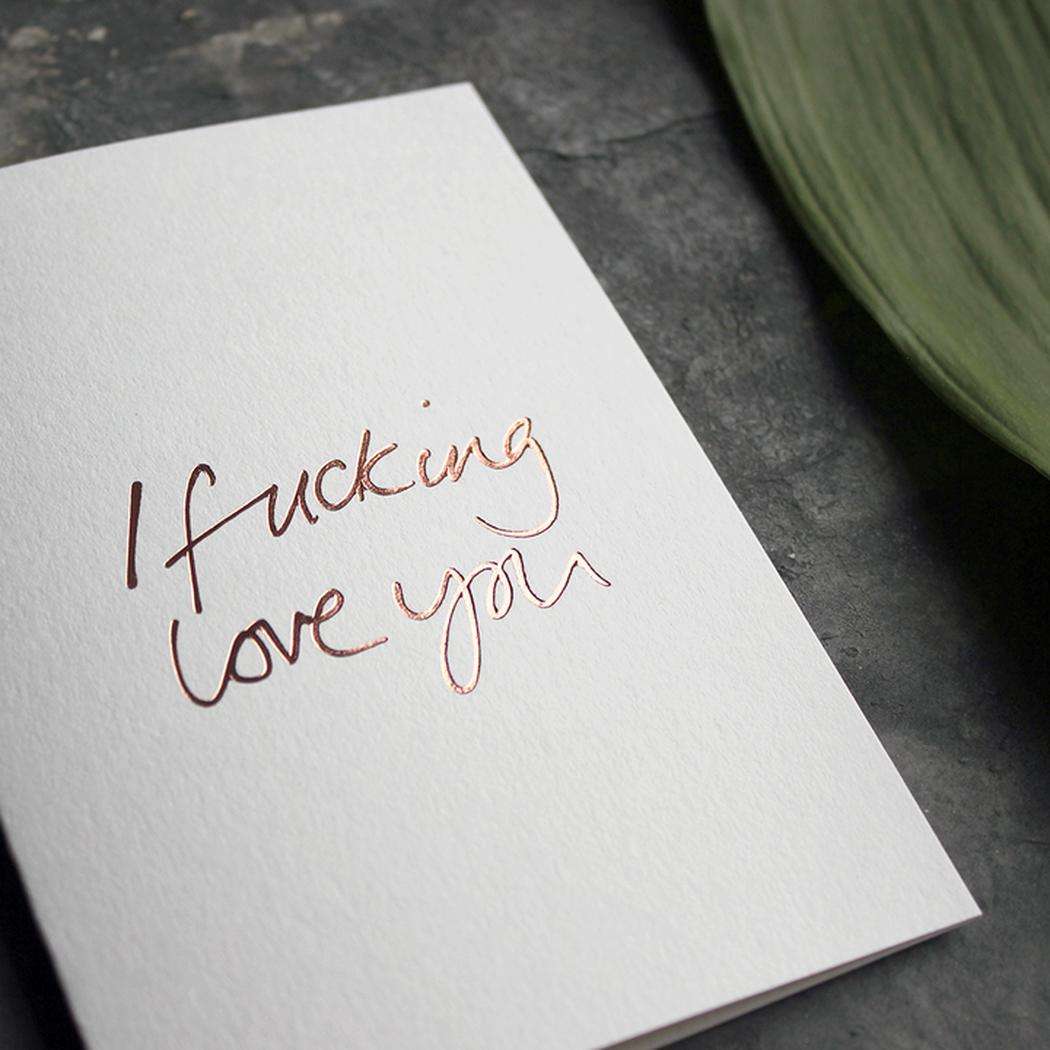 I fucking
love you